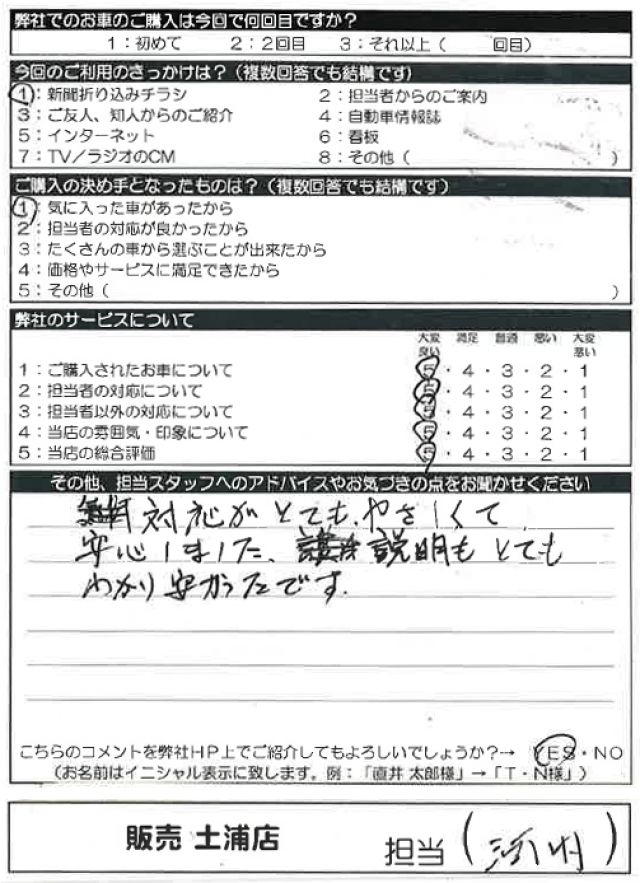 弊社でのお車のご購入は今回で何回目ですか？
1：初めて 2：2回目 3：それ以上（ 回目）
今回のご利用のきっかけは？（複数回答でも結構です）
1：新聞折り込みチラシ 2：担当者からのご案内
3：ご友人、知人からのご紹介 4：自動車情報誌
5：インターネット 6：看板
7：TV／ラジオのCM 8：その他（ ）
ご購入の決め手となったものは？（複数回答でも結構です）
1：気に入った車があったから
2：担当者の対応が良かったから
3：たくさんの車から選ぶことが出来たから
4：価格やサービスに満足できたから
5：その他（ ）
弊社のサービスについて
大変良い 満足 普通 悪い 大変悪い
1：ご購入されたお車について 5・4・3・2・1
2：担当者の対応について 5・4・3・2・1
3：担当者以外の対応について 5・4・3・2・1
4：当店の雰囲気・印象について 5・4・3・2・1
5：当店の総合評価 5・4・3・2・1
その他、担当スタッフへのアドバイスやお気づきの点をお聞かせください
対応がとても、やさしくて
安心しました、説明もとても
わかり安かったです。
こちらのコメントを弊社HP上でご紹介してもよろしいでしょうか？→ YES・NO
（お名前はイニシャル表示に致します。例：「直井 太郎様」→「T・N様」）
販売 土浦店 担当（ ）